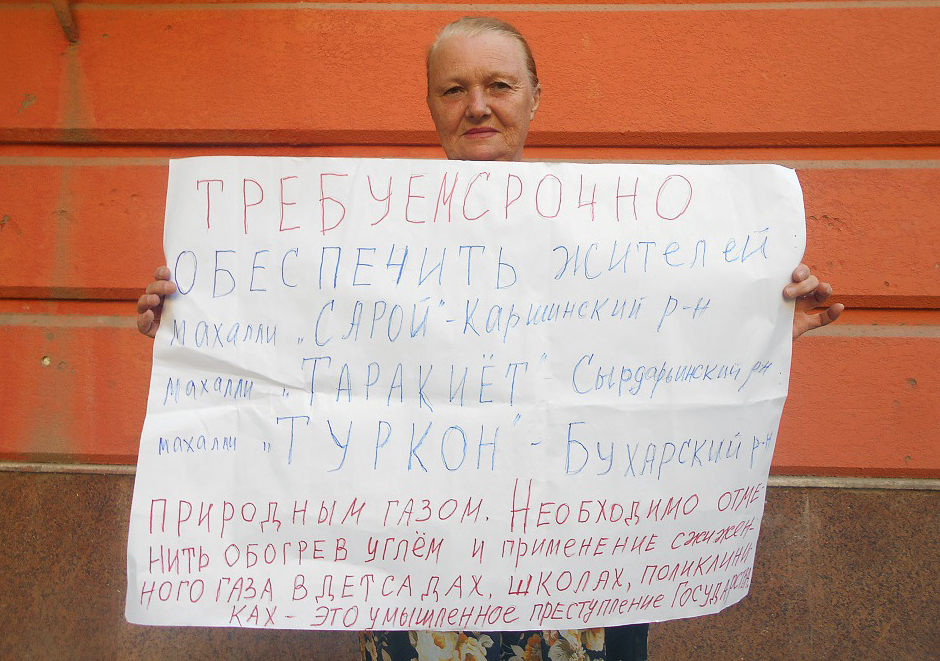 ТРЕБУЕМ СРОЧНО
ОБЕСПЕЧИТЬ ЖИТЕЛЕЙ
МАХАЛЛИ „САРОЙ" - КАРШИНСКИЙ Р-Н
МАХАЛЛИ „ТАРАКИЁТ" - СЫРДАРЬИНСКИЙ Р-Н
МАХАЛЛИ „ТУРКОН" - БУХАРСКИЙ Р-Н
ПРИРОДНЫМ ГАЗОМ. НЕОБХОДИМО ОТМЕ-
НИТЬ ОБОГРЕВ УГЛЁМ И ПРИМЕНЕНИЕ СЖИЖЕН-
НОГО ГАЗА В ДЕТСАДАХ, ШКОЛАХ, ПОЛИКЛИНИ-
КАХ - ЭТО УМЫШЛЕННОЕ ПРЕСТУПЛЕНИЕ ГОСУДАРСТВА